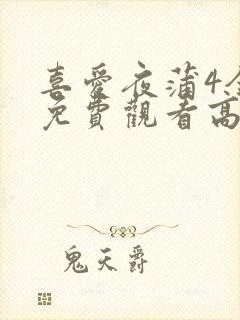 喜愛夜蒲4
免費觀看高
鬼天爵